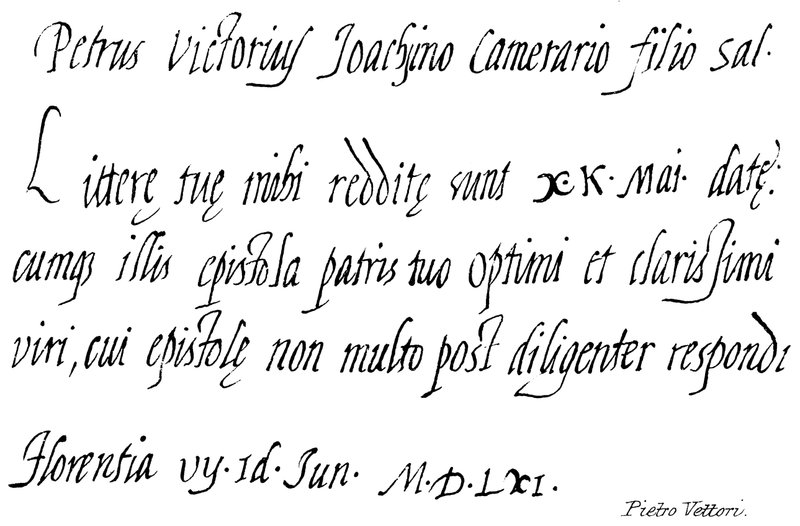 Petrus Victorius Joachino Camerario filio Sal.
Litterę tuę mihi redditę sunt XK. Mai. datę:
cumq; illis epistola patris tuo optimi et clarissimi
viri, cui epistolę non multo post diligenter respondi
Florentia vij. Id. Jun. M.D.LXI.
Pietro Vettori.